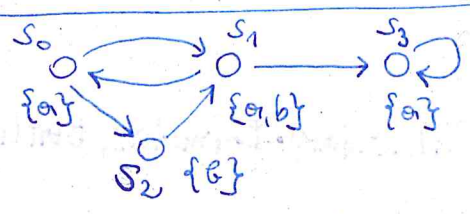 S₀ S₁ S₃
{a} {a,b} {a}
S₂ {b}